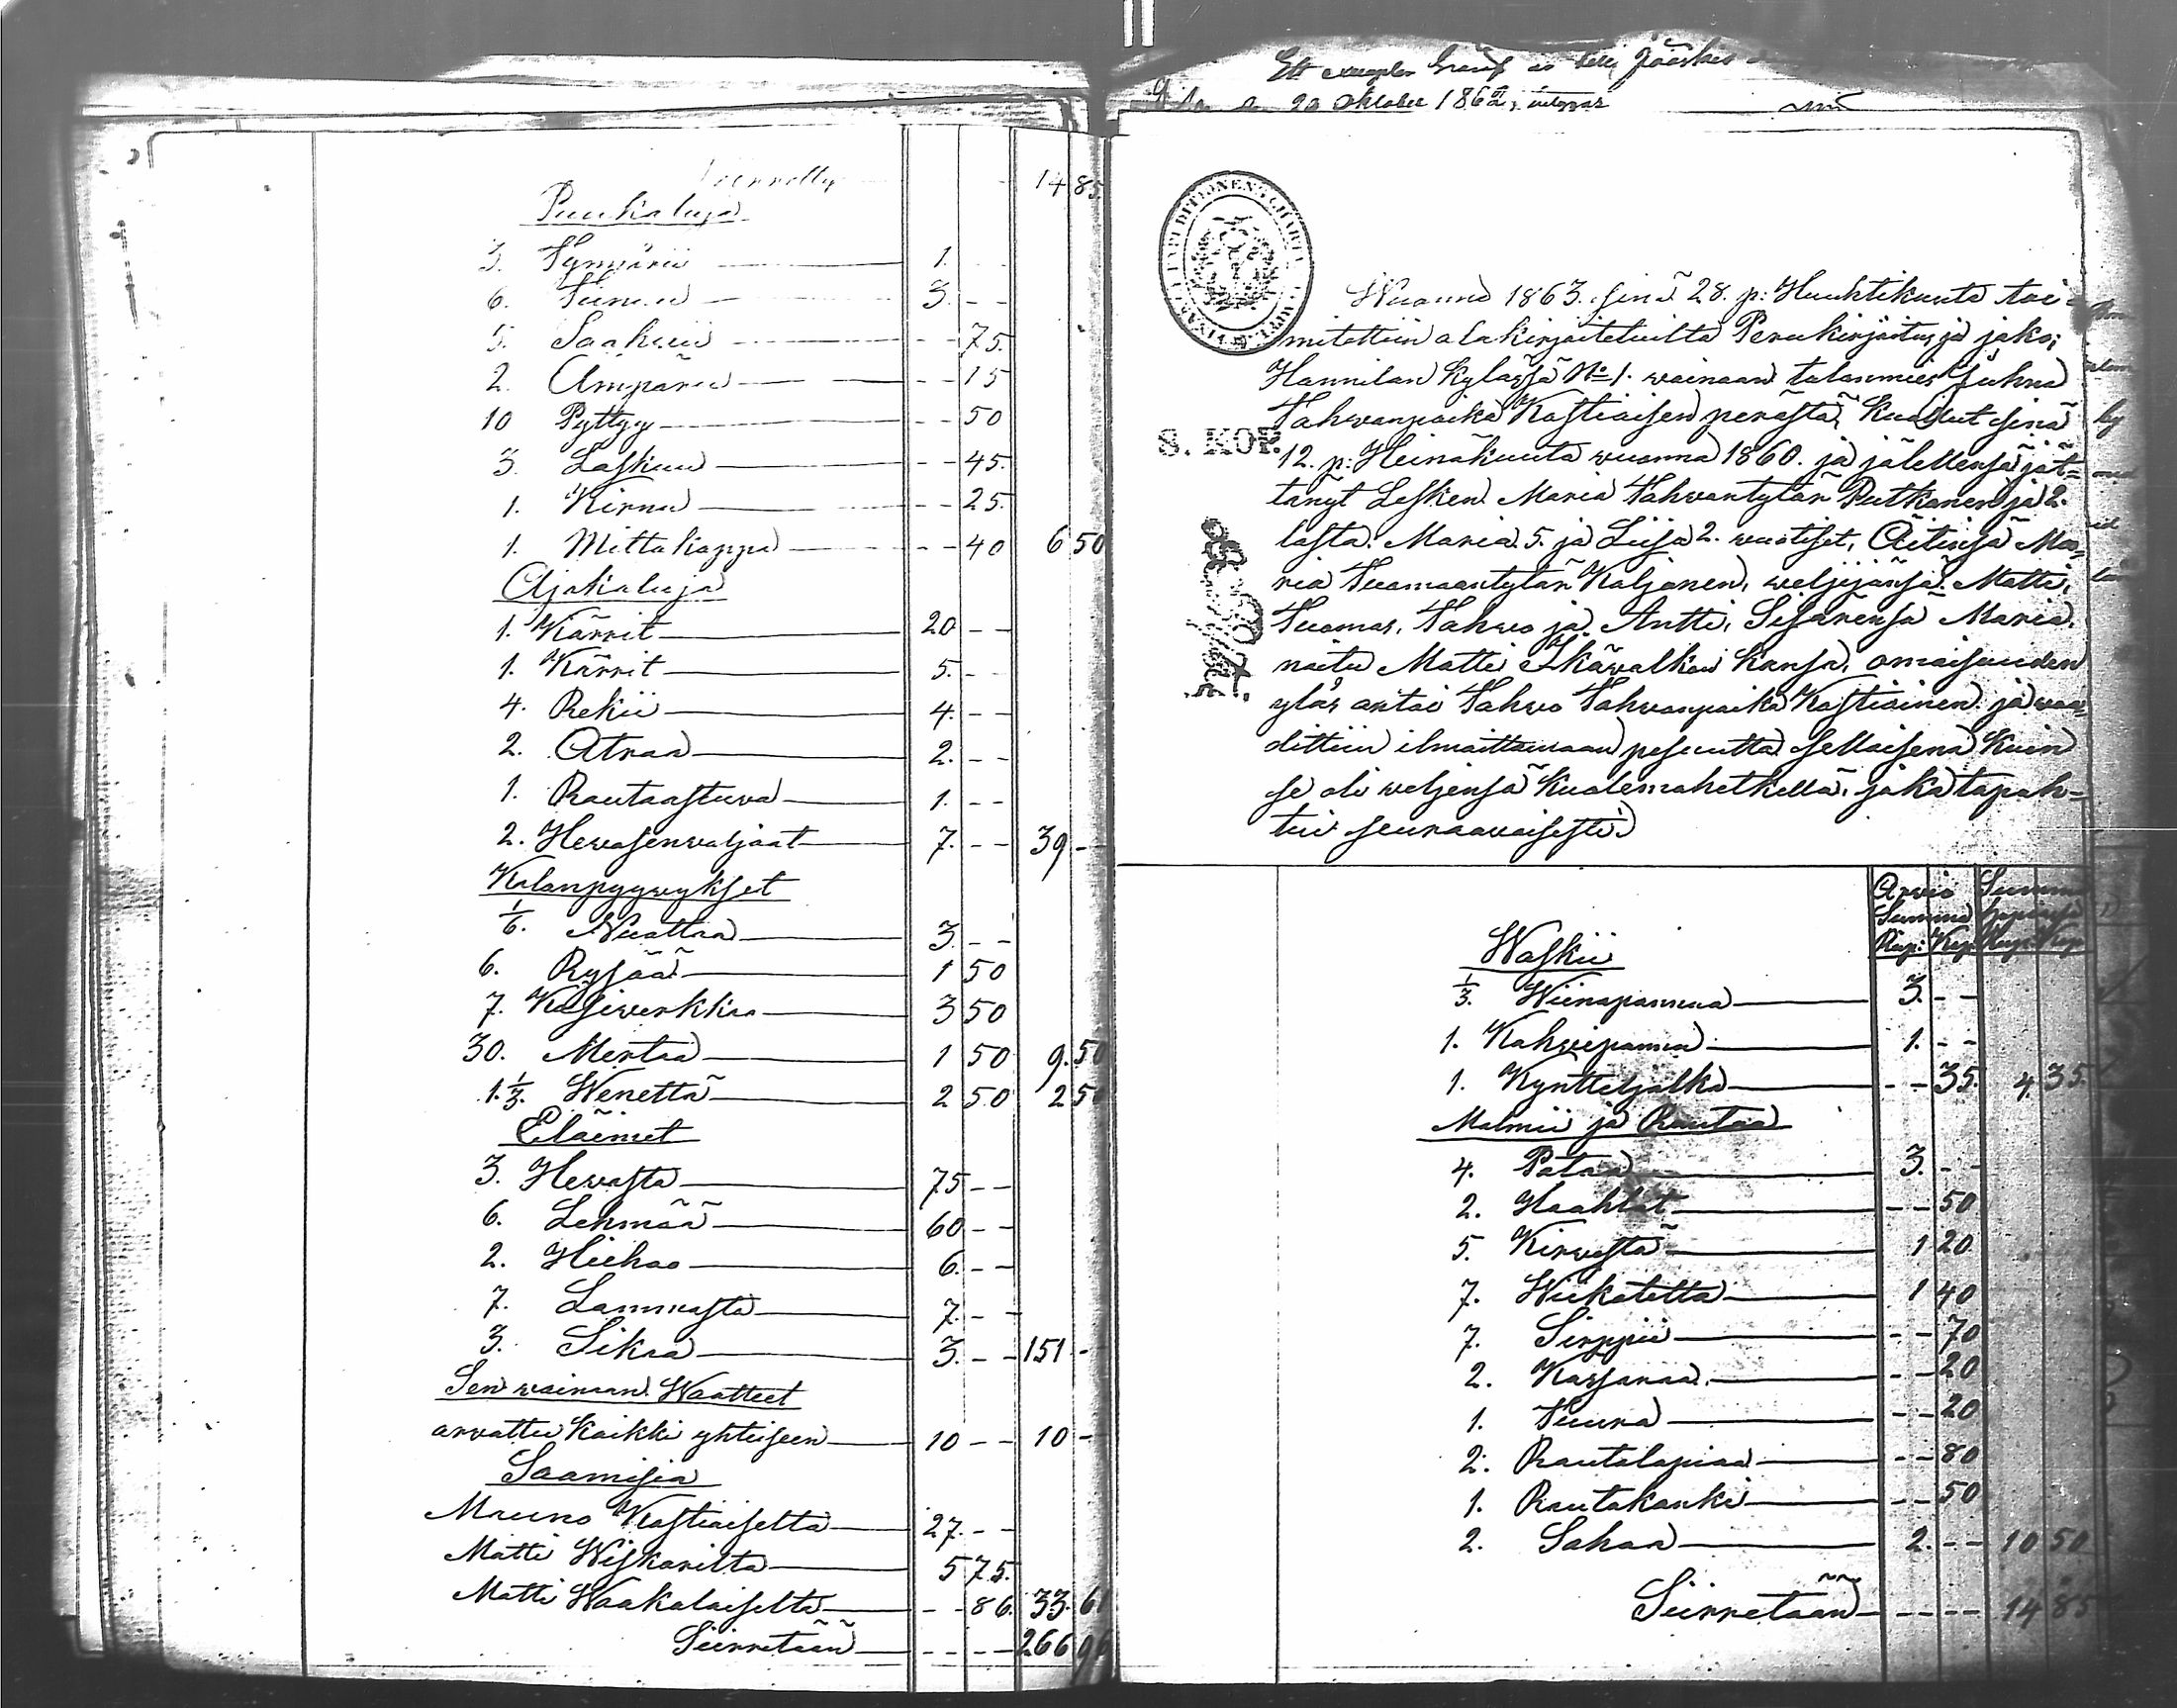 Siirretty 14 85
Puukaluja
3. Tynnärii 1. - -
6. Tiinuu 3. - -
5. Saavii - - 75.
2. Ämpäriä - - 15
10 Pyttyy - - 50
3. Laskuu - - 45.
1. Kirnu - - 25.
1. Mittakappa - - 40 6 50
Ajokaluja
1. Kärrit 20 - -
1. Kärrit 5. -
4. Rekii 4. - -
2. Atraa 2. - -
1. Rautaastuva 1. - -
2. Hewosenwaljaat 7. - - 39 -
Kalanpyyvykset
1/6. Nuottaa 3. - -
6. Rysää 1 50
7. Käsiverkkoa 3 50
30. Mertaa 1 50 9. 50
1.1/3. Wenettä 2 50 2 50
Eläimet
3. Hewosta 75 - -
6. Lehmää 60 - -
2. Hiehoo 6. - -
7. Lammasta 7. - -
3. Sikaa 3. - - 151 -
Sen wainaan Waatteet
arvattu kaikki yhteiseen 10 - - 10 -
Saamisia
Mauno Kostiaiselta 27. - -
Matti Wiskarilta 5 75.
Matti Waakalaiselta - - 86. 33. 61
Siirretään - - - - 266 96
Ett exemplar häraf är till Jääskis
20 Oktober 1862, intygar
8. KOP.
Wuonna 1863. sinä 28. p: Huuhtikuuta toi-
mitettiin alakirjoitetuilta Perukirjoitus ja jako,
Hannilan kylässä No 1. wainaan talonmies Juhna
Tahwanpoika Kostiaisen perästä, kuollut sinä
12. p: Heinäkuuta wuonna 1860. ja jälellensä jät-
tänyt Lesken Maria Tahwantytär Putkonen ja 2.
lasta. Maria 5. ja Liisa 2. wuotiset, Äitinsä Ma-
ria Tuomaantytär Kaljonen, weljijänsä Matti,
Tuomas, Tahwo ja Antti, Sisarensa Maria,
naitu Matti Ikäwalkon kansa, omaisuuden
ylös antoi Tahwo Tahwanpoika Kostiainen ja waa-
dittiin ilmoittamaan pesuutta sellaisena kuin
se oli weljensä kuolemahetkellä, joka tapah-
tui seuraavaisesti:
Arwio Summa
Summa hopiassa
Rup: Kop. Rup: Kop.
Waskii
1/3. Wiinapannua 3. - -
1. Kahwipannu 1. - -
1. Kynttiljalka - - 35. 4. 35.
Malmii ja Rautaa
4. Pataa 3. - -
2. Haahlat - - 50
5. Kirvestä 1 20
7. Wiikatetta 1 40
7. Sirppii - - 70
2. Kassaraa - - 20
1. Tuura - - 20
2. Rautalapiaa - - 80
1. Rautakanki - - 50
2. Sahaa 2. - - 10 50
Siirretään - - - - 14 85